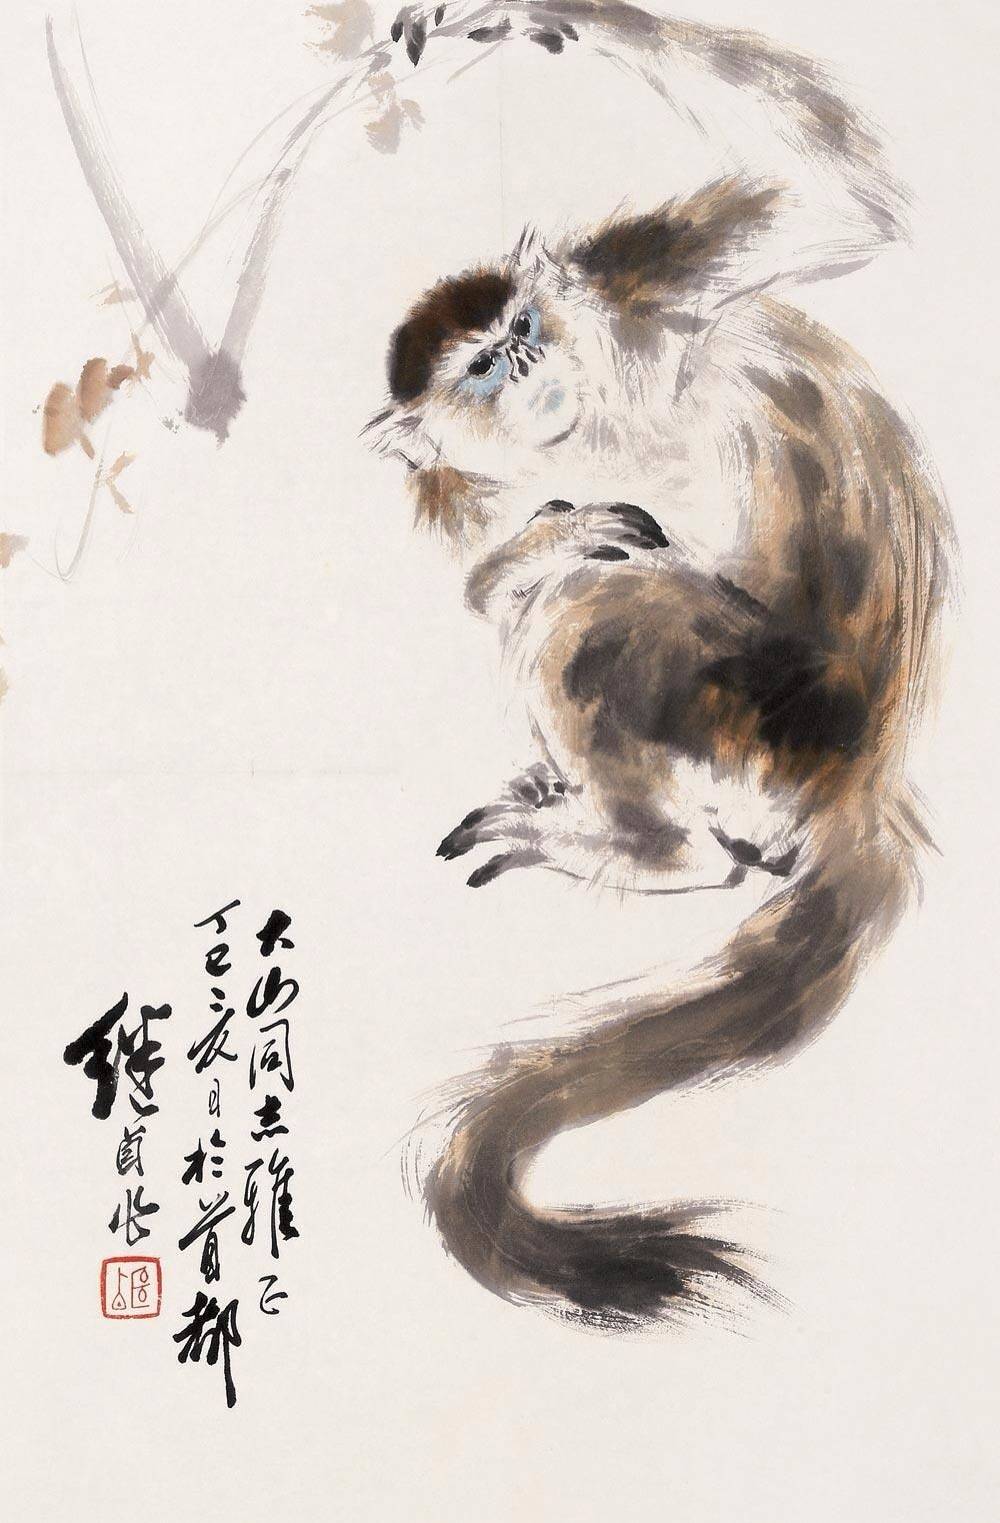 大山同志雅正
丁巳亥月於首都
继卣作